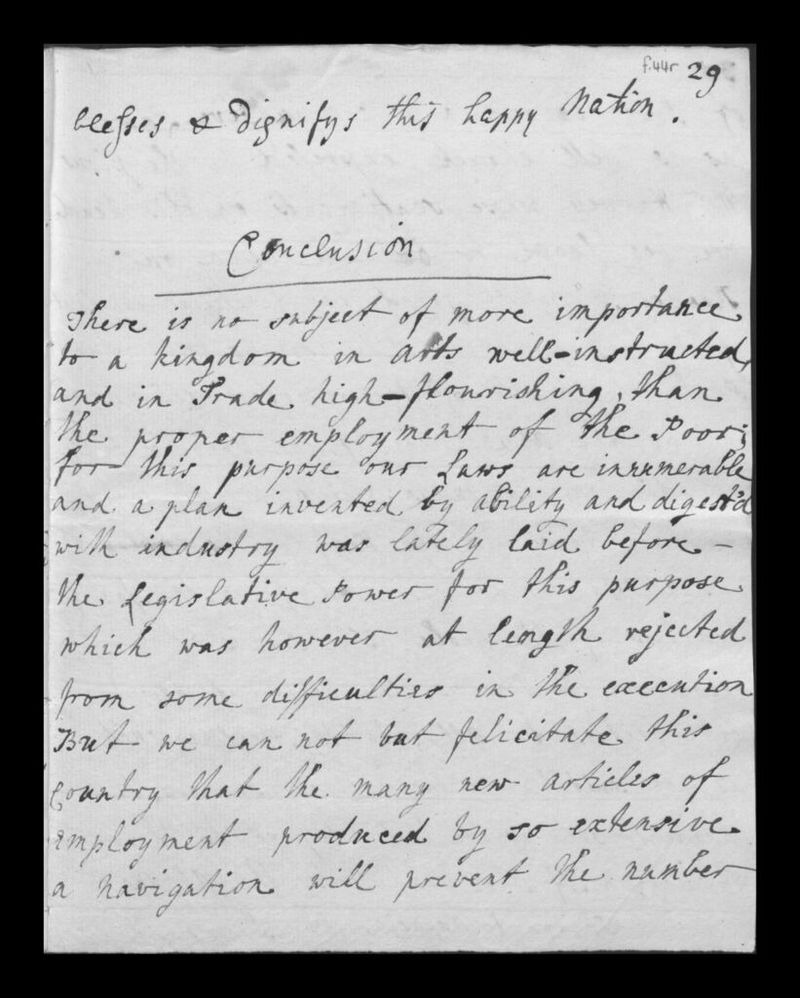 f.44r 29
blesses & Dignifys this happy Nation.
Conclusion
There is no subject of more importance
to a kingdom in Arts well-instructed,
and in Trade high-flourishing, than
the proper employment of the Poor;
for this purpose our Laws are innumerable
and a plan invented by ability and digest'd
with industry was lately laid before -
the Legislative Power for this purpose
which was however at length rejected
from some difficulties in the execution
But we can not but felicitate this
Country that the many new articles of
employment produced by so extensive
a navigation will prevent the number